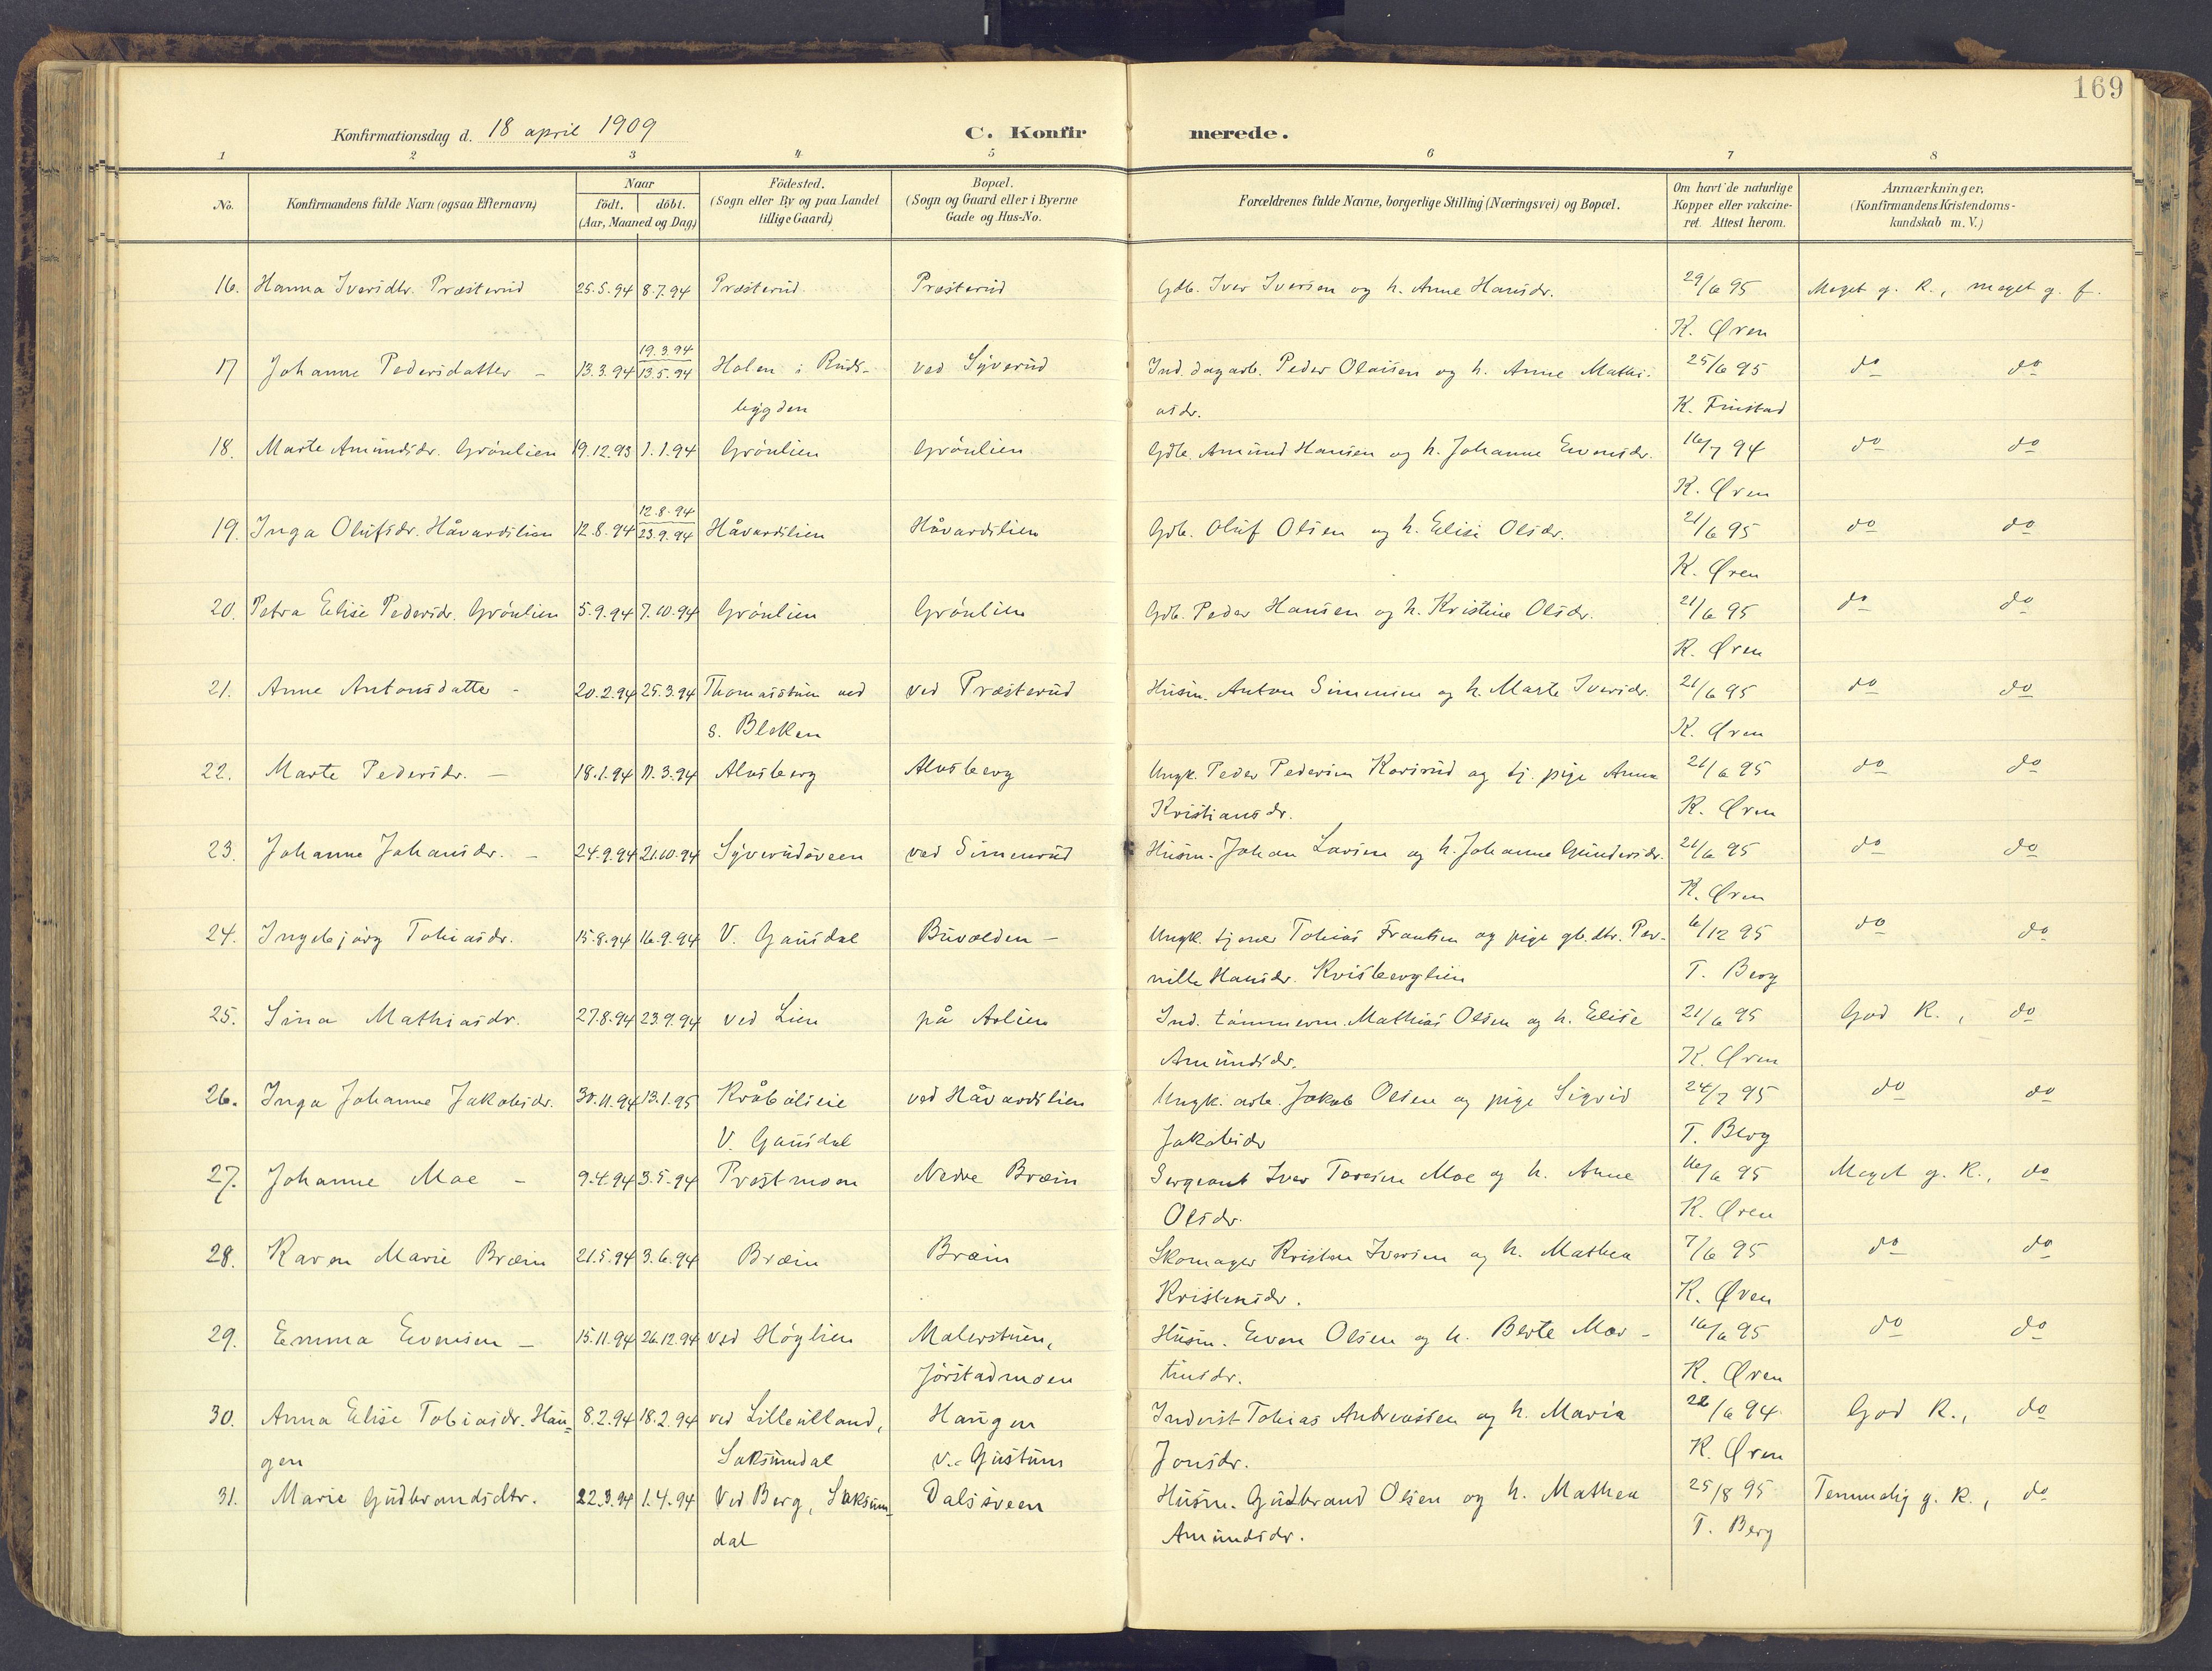 169
Konfirmationsdag d. 18 april 1909
C. Konfirmerede.
1 2 3 4 5 6 7 8
No. Konfirmandens fulde Navn (ogsaa Efternavn) Naar født. døbt. (Aar, Maaned og Dag) Födested. (Sogn eller By og paa Landet tillige Gaard) Bopæl. (Sogn og Gaard eller i Byerne Gade og Hus-No. Forældrenes fulde Navne, borgerlige Stilling (Næringsvei) og Bopæl. Om havt de naturlige Kopper eller vakcineret. Attest herom. Anmærkninger, (Konfirmandens Kristendomskundskab m. V.)
16. Hanna Iversdtr. Præsterud 25.5.94 8.7.94 Præsterud Præsterud Gdb. Iver Iversen og h. Anne Hansdr. 29/6 95 Meget g. K., meget g. f.
K. Øren
19.3.94
17 Johanne Pedersdatter - 13.3.94 13.5.94 Holen iRuds- ved Syverud Ind. dagarb. Peder Olaisen og h. Anne Mathi- 25/6 95 do do
bygden asdr. K. Finstad
18. Marte Amundsdr. Grönlien 19.12.93 1.1.94 Grönlien Grönlien Gdb. Amund Hansen og h. Johanne Evensdr. 16/7 94 do do
K. Øren
12.8.94
19. Inga Olufsdr. Håvardslien 12.8.94 23.9.94 Håvardslien Håvardslien Gdb. Oluf Olsen og h. Elise Olsdr. 21/6 95 do do
K. Øren
20. Petra Elise Pedersdr. Grönlien 5.9.94 7.10.94 Grönlien Grönlien Gdb. Peder Hansen og h. Kristine Olsdr. 21/6 95 do do
K. Øren
21. Anne Antonsdatter - 20.2.94 25.3.94 Thomasstuen ved ved Præsterud Husm. Anton Simensen og h. Marte Iversdr. 21/6 95 do do
s. Bleken K. Øren
22. Marte Pedersdr. - 18.1.94 11.3.94 Alvsberg Alvsberg Ungk. Peder Pedersen Karsrud og tj. pige Anna 21/6 95 do do
Kristiansdr. K. Øren
23. Johanne Johansdr. - 24.9.94 21.10.94 Syverudsveen ved Simenrud Husm. Johan Larsen og h. Johanne Gundersdr. 21/6 95 do do
K. Øren
24. Ingebjörg Tobiasdr. 15.8.94 16.9.94 V. Gausdal Buvolden - Ungk. tjener Tobias Frantsen og pige gb. dtr. Per- 6/12 95 do do
nille Hansdr. Kvisberglien T. Berg
25. Sina Mathiasdr. 27.8.94 23.9.94 ved Lien på Aslien Ind. tömmerm. Mathias Olsen og h. Elise 21/6 95 God K., do
Amundsdr. K. Øren
26. Inga Johanne Jakobsdr. 30.11.94 13.1.95 Kråbölseie ved Håvardslien Ungk. arb. Jakob Olsen og pige Sigrid 24/7 95 do do
V. Gausdal Jakobsdr T. Berg
27. Johanne Moe - 9.4.94 3.5.94 Prestmoen Nedre Bræin Sergeant Iver Toresen Moe og h. Anne 16/6 95 Meget g. K., do
Olsdr. K. Øren
28. Karen Marie Bræin 21.5.94 3.6.94 Bræin Bræin Skomager Kristen Iversen og h. Mathea 7/6 95 do do
Kristensdr. K. Øren
29. Emma Evensen - 15.11.94 26.12.94 ved Höglien Malerstuen, Husm. Even Olsen og h. Berte Mar- 16/6 95 do do
Jörstadmoen tinsdr. K. Øren
30. Anna Elise Tobiasdr. Hau- 8.2.94 18.2.94 ved Lilleulland, Haugen Inderst Tobias Andreassen og h. Maria 22/6 94 God K., do
gen Saksumdal v. Gustum Jonsdr. K. Øren
31. Marie Gudbrandsdtr. 22.3.94 1.4.94 Ved Berg, Saksum- Dalssveen Husm. Gudbrand Olsen og h. Mathea 25/8 95 Temmelig g. K., do
dal Amundsdr. T. Berg